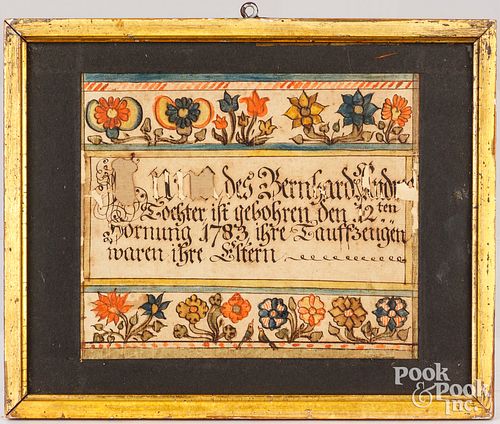 des Bernhard
Tochter ist gebohren den 12ten
Hornung 1783, ihre Tauffzeugen
waren ihre Eltern
POOK
& POOK
Inc.